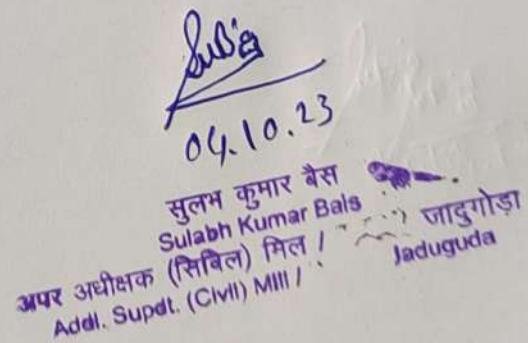 04.10.23
सुलभ कुमार बैस
Sulabh Kumar Bais
अपर अधीक्षक (सिविल) मिल / जादुगोड़ा
Addl. Supdt. (Civil) Mill / Jaduguda